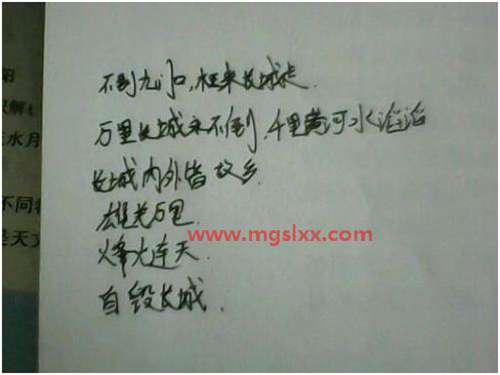 不到九门口,枉来长城走.
万里长城永不倒,千里黄河水滔滔
长城内外皆故乡.
雄关万里.
www.mgslxx.com
烽火连天.
自毁长城.
阳
误解
水月
不同
是天文